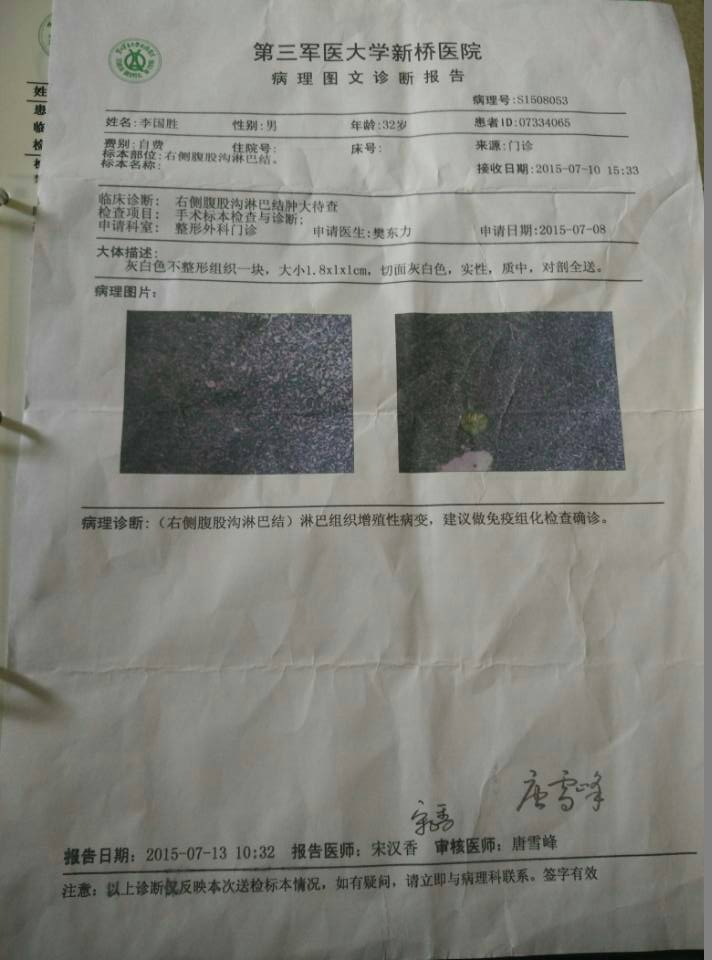 第三军医大学新桥医院
病理图文诊断报告
病理号:S1508053
姓名:李国胜 性别:男 年龄:32岁 患者ID:07334065
费别:自费 住院号: 床号: 来源:门诊
标本部位:右侧腹股沟淋巴结。
标本名称: 接收日期:2015-07-10 15:33
临床诊断: 右侧腹股沟淋巴结肿大待查
检查项目: 手术标本检查与诊断;
申请科室: 整形外科门诊 申请医生:樊东力 申请日期:2015-07-08
大体描述:
灰白色不整形组织一块,大小1.8x1x1cm,切面灰白色,实性,质中,对剖全送。
病理图片:
病理诊断:(右侧腹股沟淋巴结)淋巴组织增殖性病变,建议做免疫组化检查确诊。
唐雪峰
报告日期: 2015-07-13 10:32 报告医师: 宋汉香 审核医师: 唐雪峰
注意: 以上诊断仅反映本次送检标本情况,如有疑问,请立即与病理科联系。签字有效
姓
患
临
检